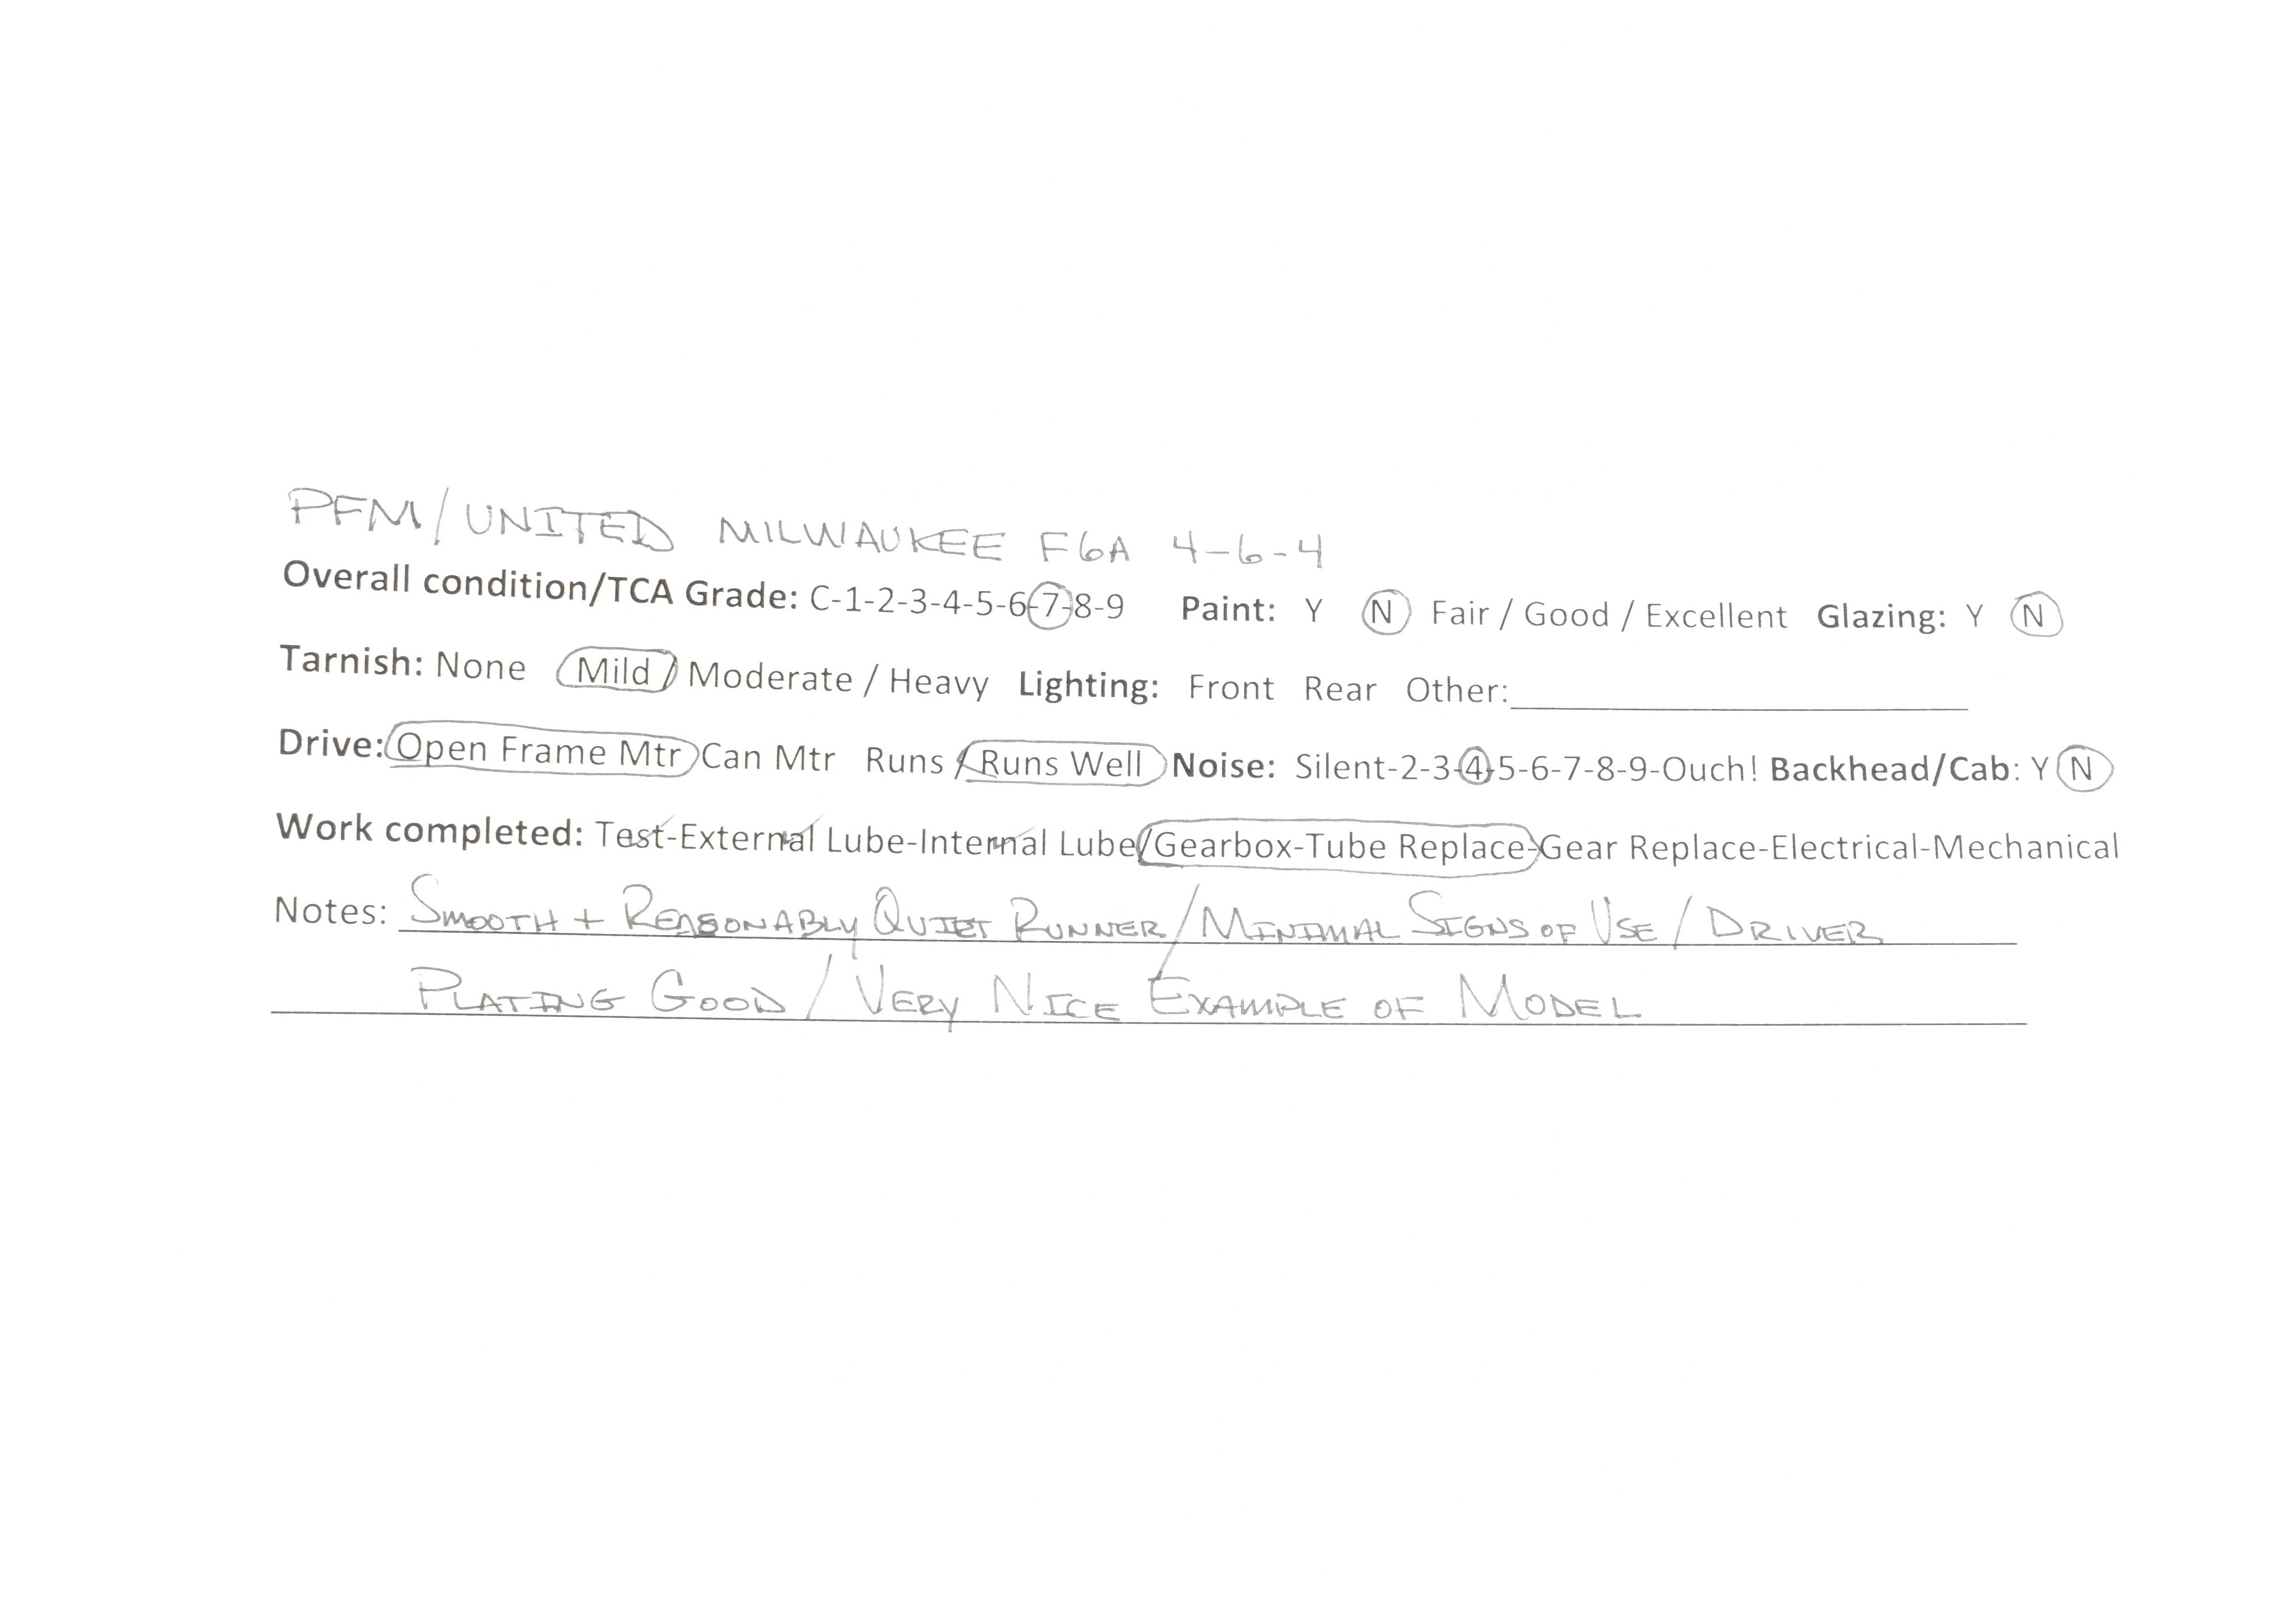 PFM/UNITED MILWAUKEE F6A 4-6-4
Overall condition/TCA Grade: C-1-2-3-4-5-6-7-8-9 Paint: Y N Fair / Good / Excellent Glazing: Y N
Tarnish: None Mild / Moderate / Heavy Lighting: Front Rear Other:
Drive: Open Frame Mtr Can Mtr Runs / Runs Well Noise: Silent-2-3-4-5-6-7-8-9-Ouch! Backhead/Cab: Y N
Work completed: Test-External Lube-Internal Lube/Gearbox-Tube Replace-Gear Replace-Electrical-Mechanical
Notes: SMOOTH + REASONABLY QUIET RUNNER/MINIMAL SIGNS OF USE/DRIVER
PLATING GOOD/VERY NICE EXAMPLE OF MODEL